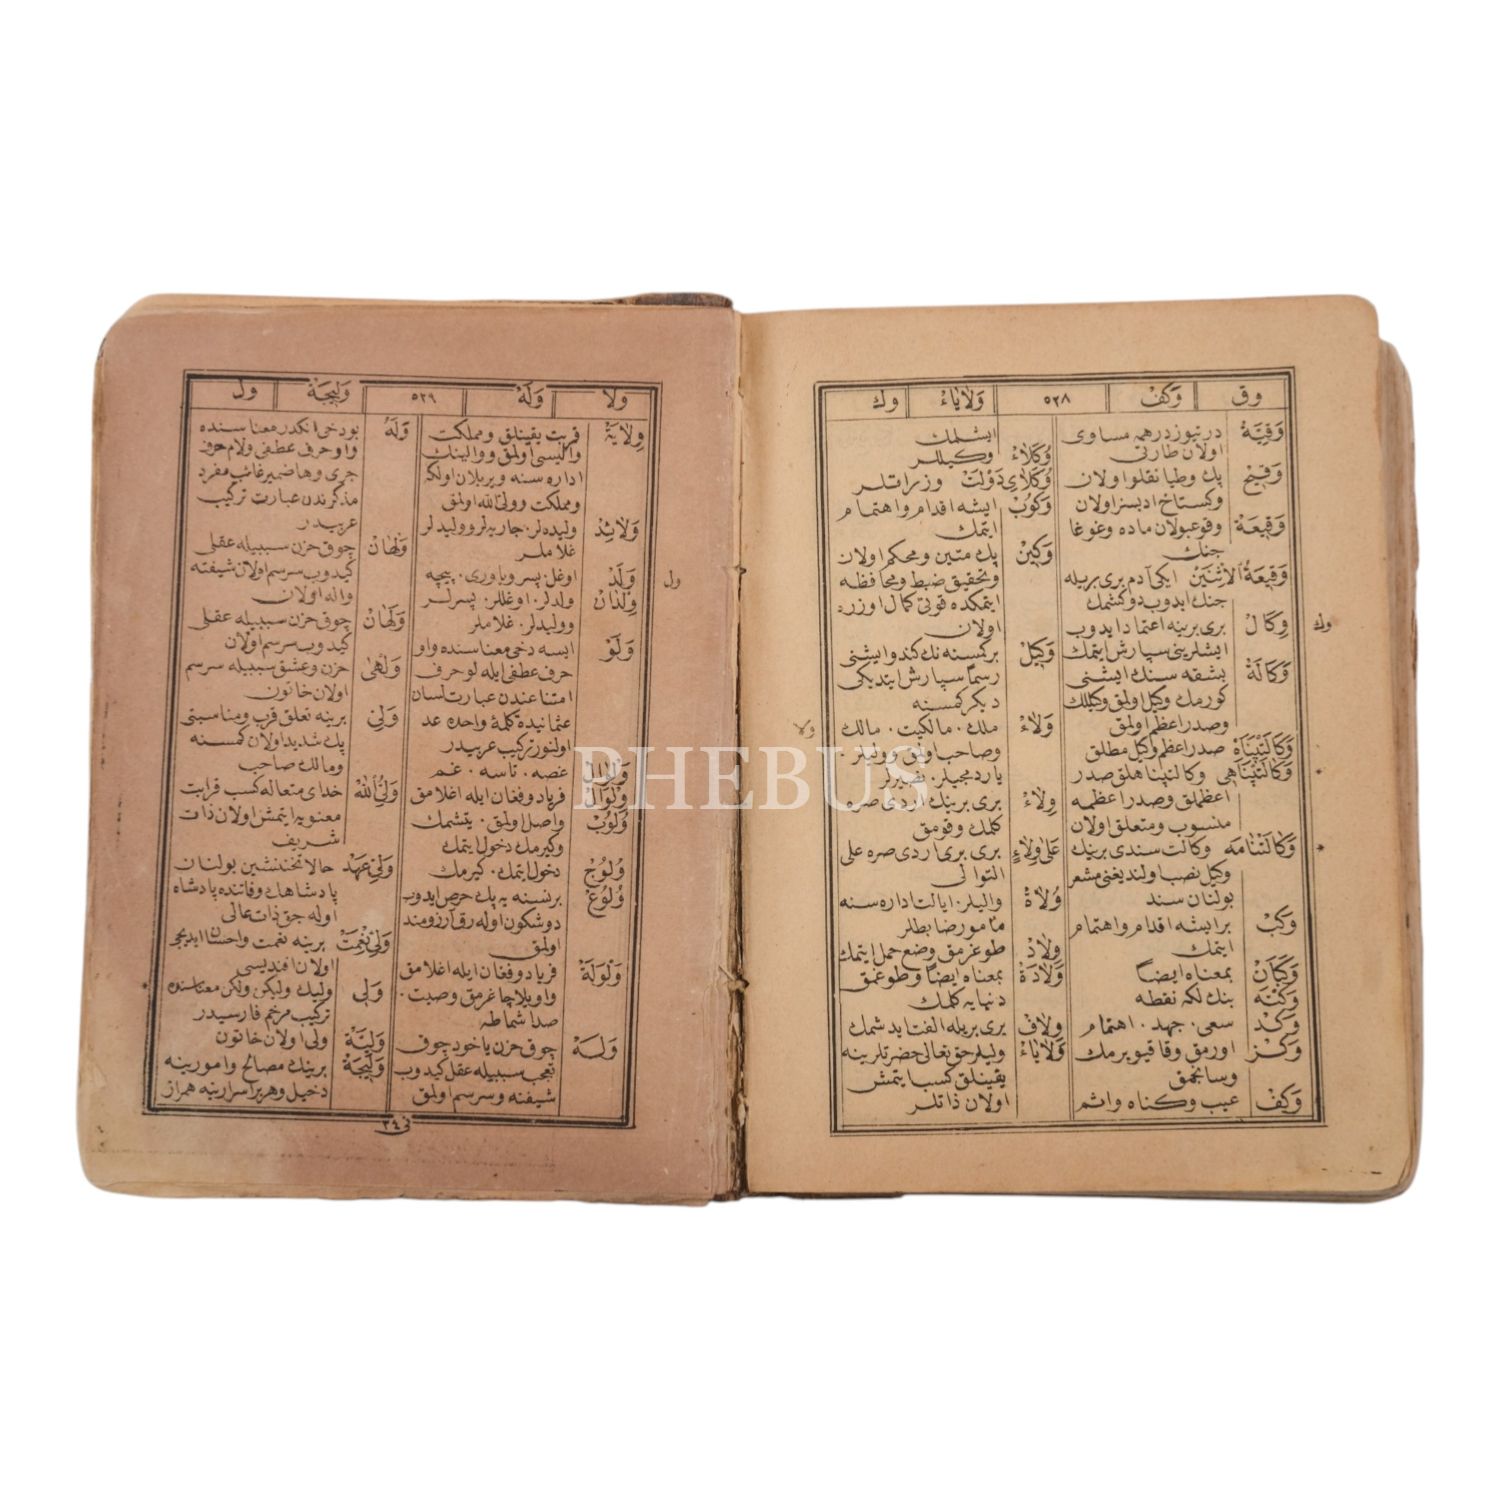 وق
وكف
٥٢٨
ولاياء
وك
وَقِيَّة درتيوز درهمه مساوى
اولان طارتى
وَقِيح پك وطيا نقلو اولان
وكستاخ ادبسز اولان
وَقِيعَة وقوعبولان ماده وغوغا
جنك
وَقِيعَةُ الاثنَين ايكى آدم برى بريله
جنك ايدوب دوكشمك
وِكَال برى برينه اعتماد ايدوب
ايشلرينى سپارش ايتمك
وَكَالَة بشقه سنك ايشنى
كورمك وكيل اولمق وكيللك
وصدر اعظم اولمق
وَكَالَتپَناه صدر اعظم وكيل مطلق
وَكَالَتپَناهى وكالتپناهلق صدر
اعظملق وصدر اعظمه
منسوب ومتعلق اولان
وَكَالَتنَامه وكالت سندى برينك
وكيل نصب اولنديغنى مشعر
بولنان سند
وَكب برايشه اقدام واهتمام
ايتمك
وَكبَان بمعناه ايضاً
وَكتَه بنك لكه نقطه
وَكد سعى ٠ جهد ٠ اهتمام
وَكز اورمق وقاقيويرمك
وسانجمق
وَكِف عيب وكناه واثم
ايشلمك
وُكَلاء وكيللر
وُكَلاى دَولَت وزراتلر
وُكُوب ايشه اقدام واهتمام
ايتمك
وَكِين پك متين ومحكم اولان
وتحقيق ضبط ومحافظه
ايتمكده قوتى كمال اوزره
اولان
وَكِيل بركمسنه نك كندو ايشنى
رسماً سپارش ايتديكى
ديكر كمسنه
وَلاء ملك ٠ مالكيت ٠ مالك
وصاحب اولمق ووليلر ٠
ياردمجيلر ٠ نصيرلر
وِلاء برى برينك اردى صره
كلمك وقومق
عَلى وِلاءٍ برى برى اردى صره على
التوالى
وُلاة واليلر ٠ ايالت اداره سنه
مأمور ضابطلر
وِلاد طوغرمق وضع حمل ايتمك
وِلادَة بمعناه وايضاً وطوغمق
دنيايه كلمك
وِلاف برى بريله الفتايدشمك
وَلاياء وليلر حق تعالى حضرتلرينه
يقينلق كسب ايتمش
اولان ذاتلر
وك
ولا
PHEBUS
ولا
وَلَهُ
٥٢٩
وَلِيجَة
ول
وِلايَة قربت يقينلق ومملكت
واليسى اولمق ووالينك
اداره سنه ويريلان اولكه
ومملكت وولى الله اولمق
وَلائِد وليده لر ٠ جاريه لر ووليدلر
غلاملر
وَلَد اوغل پسر وياورى ٠ پيچه
وِلدَان ولدلر ٠ اوغللر ٠ پسرلر
ووليدلر ٠ غلاملر
وَلَو ايسه دخى معناسنده واو
حرف عطفى ايله لو حرف
امتناعندن عبارت لسان
عثمانيده كلمۀ واحده عد
اولنور تركيب عربيدر
وَلوَال غصه ٠ تاسه ٠ غم
وِلوَال فرياد وفغان ايله اغلامق
وُلُوب واصل اولمق ٠ يتشمك
وكيرمك دخول ايتمك
وُلُوج دخول ايتمك ٠ كيرمك
وُلُوع برنسنه يه پك حرص ايدوب
دوشكون اوله رق آرزومند
اولمق
وَلوَلَة فرياد وفغان ايله اغلامق
واويلا چاغرمق وصيت ٠
صدا شماطه
وَلَه چوق حزن ياخود چوق
تعجب سببيله عقل كيدوب
شيفته وسرسم اولمق
وَلَهُ بو دخى انكدر معناسنده
واو حرف عطفى ولام حرف
جرى وها ضمير غائب مفرد
مذكرندن عبارت تركيب
عربيدر
وَلهَان چوق حزن سببيله عقلى
كيدوب سرسم اولان شيفته
واله اولان
وَلَهَان چوق حزن سببيله عقلى
كيدوب سرسم اولان
وَلهَى حزن وعشق سببيله سرسم
اولان خاتون
وَلِى برينه تعلق قرب ومناسبتى
پك شديد اولان كمسنه
ومالك صاحب
وَلِىُّ الله خداى متعاله كسب قرابت
معنويه ايتمش اولان ذات
شريف
وَلِى عَهد حالا تختنشين بولنان
پادشاهك وفاتنده پادشاه
اوله جق ذات عالى
وَلِى نِعمَت برينه نعمت واحسان ايديجى
اولان افنديسى
وَلِى وليك وليكن ولكن معناسنده
تركيب مرخم فارسيدر
وَلِيَّة ولى اولان خاتون
وَلِيجَة برينك مصالح وامورينه
دخيل وهربر اسرارينه همراز
ول
٣٤